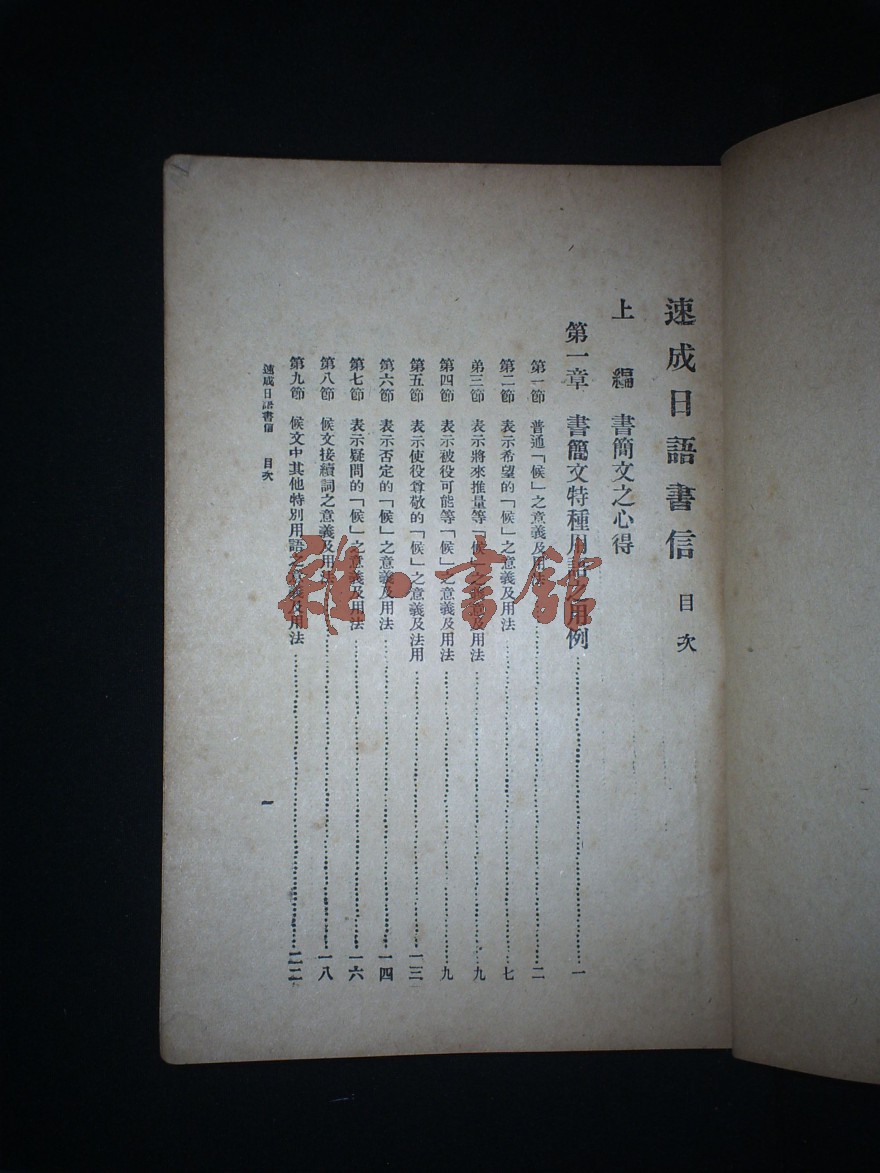 速成日語書信 目次
上編 書簡文之心得
第一章 書簡文特種用語之用例……一
第一節 普通「候」之意義及用法……二
第二節 表示希望的「候」之意義及用法……七
第三節 表示將來推量等「候」之意義及用法……九
第四節 表示被役可能等「候」之意義及用法……九
第五節 表示使役尊敬的「候」之意義及法用……一三
第六節 表示否定的「候」之意義及用法……一四
第七節 表示疑問的「候」之意義及用法……一六
第八節 候文接續詞之意義及用法……一八
第九節 候文中其他特別用語之意義及用法……二二
速成日語書信 目次 一
雜·書館